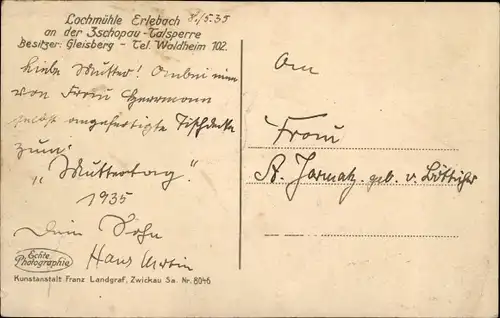 Lochmühle Erlebach
an der Zschopau-Talsperre
Besitzer: Gleisberg - Tel. Waldheim 102.
8./5.35
Liebe Mutter! Anbei eine
von Frau Herrmann
selbst angefertigte Tischdecke
zum
"Muttertag".
1935
Dein Sohn
Hans
Echte Photographie
Kunstanstalt Franz Landgraf, Zwickau Sa. Nr. 8046
An
Frau
A. Jarmatz geb. v. Bötticher